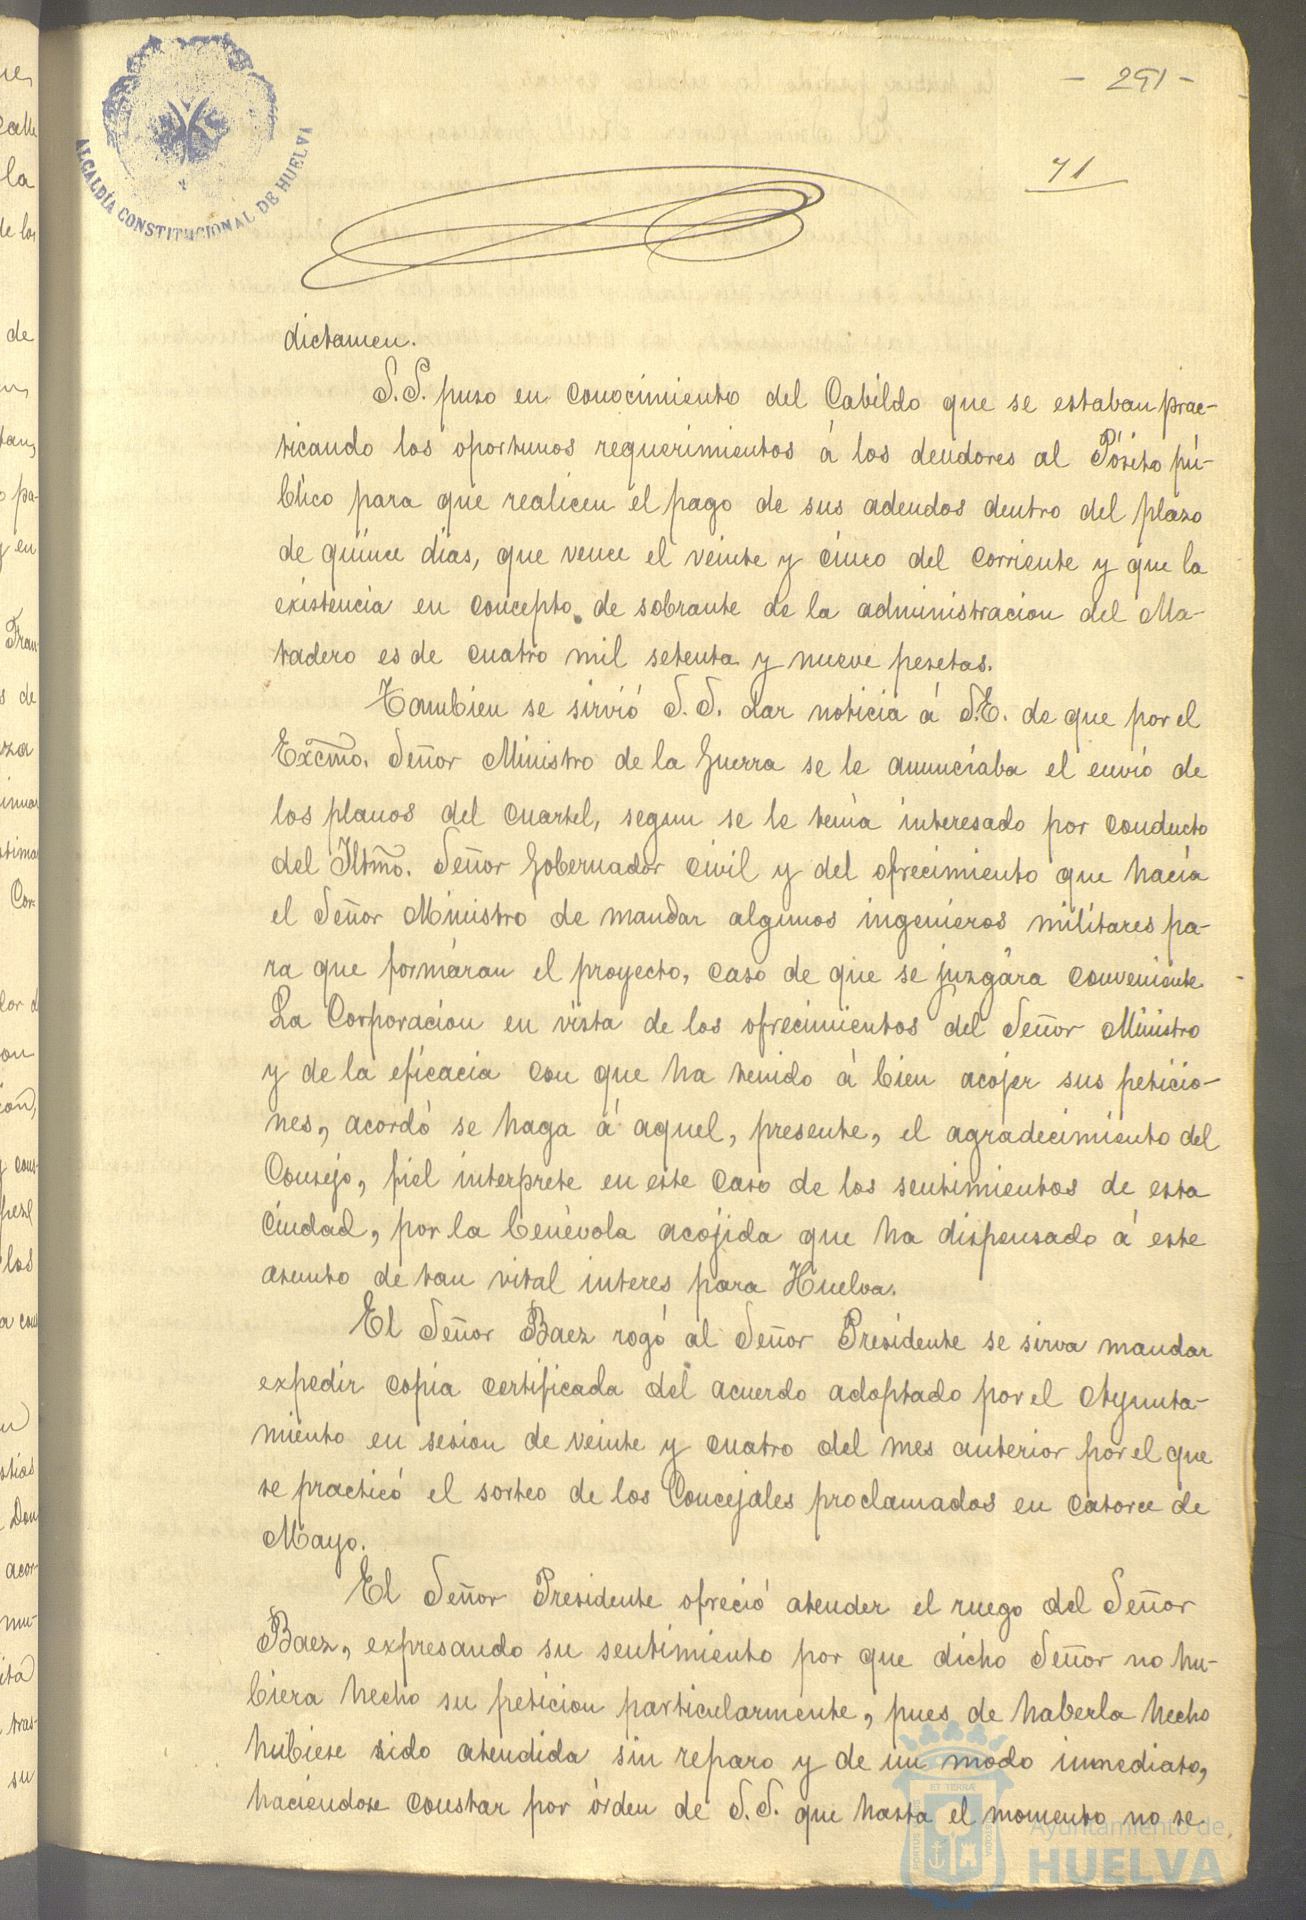 - 291 -
71
ALCALDÍA CONSTITUCIONAL DE HUELVA
dictamen.
S.S. puso en conocimiento del Cabildo que se estaban prac-
ticando los oportunos requerimientos á los deudores al Pósito pú-
blico para que realicen el pago de sus adeudos dentro del plazo
de quince dias, que vence el veinte y cinco del corriente y que la
existencia en concepto de sobrante de la administracion del Ma-
tadero es de cuatro mil setenta y nueve pesetas.
Tambien se sirvió S.S. dar noticia á S.E. de que por el
Excmo. Señor Ministro de la Guerra se le anunciaba el envío de
los planos del cuartel, segun se le tenía interesado por conducto
del Iltmo. Señor Gobernador civil y del ofrecimiento que hacía
el Señor Ministro de mandar algunos ingenieros militares pa-
ra que formáran el proyecto, caso de que se juzgára conveniente
La Corporacion en vista de los ofrecimientos del Señor Ministro
y de la eficacia con que ha tenido á bien acojer sus peticio-
nes, acordó se haga á aquel, presente, el agradecimiento del
Consejo, fiel interprete en este caso de los sentimientos de esta
ciudad, por la benévola acojida que ha dispensado á este
asunto de tan vital interes para Huelva.
El Señor Baez rogó al Señor Presidente se sirva mandar
expedir copia certificada del acuerdo adoptado por el Ayunta-
miento en sesion de veinte y cuatro del mes anterior por el que
se practicó el sorteo de los Concejales proclamados en catorce de
Mayo.
El Señor Presidente ofreció atender el ruego del Señor
Baez, expresando su sentimiento por que dicho Señor no hu-
biera hecho su peticion particularmente, pues de haberla hecho
hubiese sido atendida sin reparo y de un modo inmediato,
haciéndose constar por órden de S.S. que hasta el momento no se
Ayuntamiento de
HUELVA